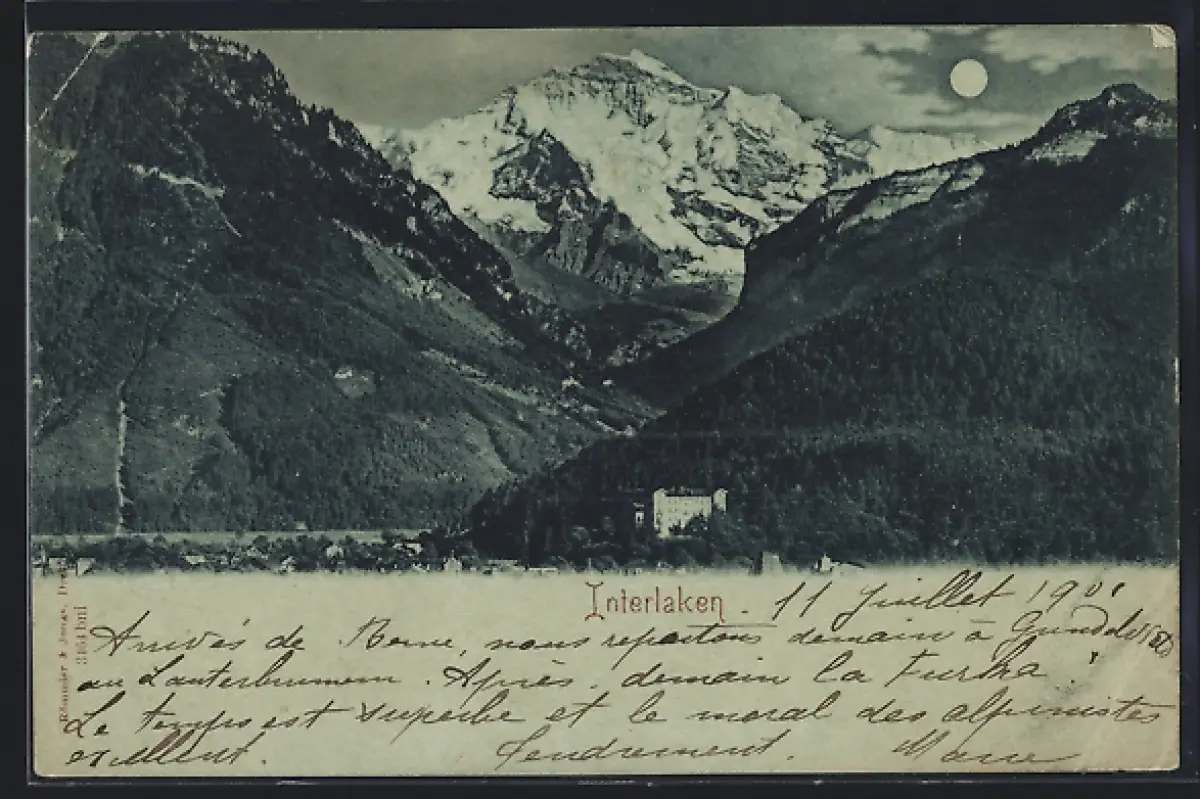 Interlaken. 11 Juillet 1901
Arrivés de Berne, nous repartons demain à Grindelwald
au Lauterbrunnen. Après demain la Furka !
Le temps est superbe et le moral des alpinistes
excellent. Tendrement. Marie
Römmler & Jonas, Dresd